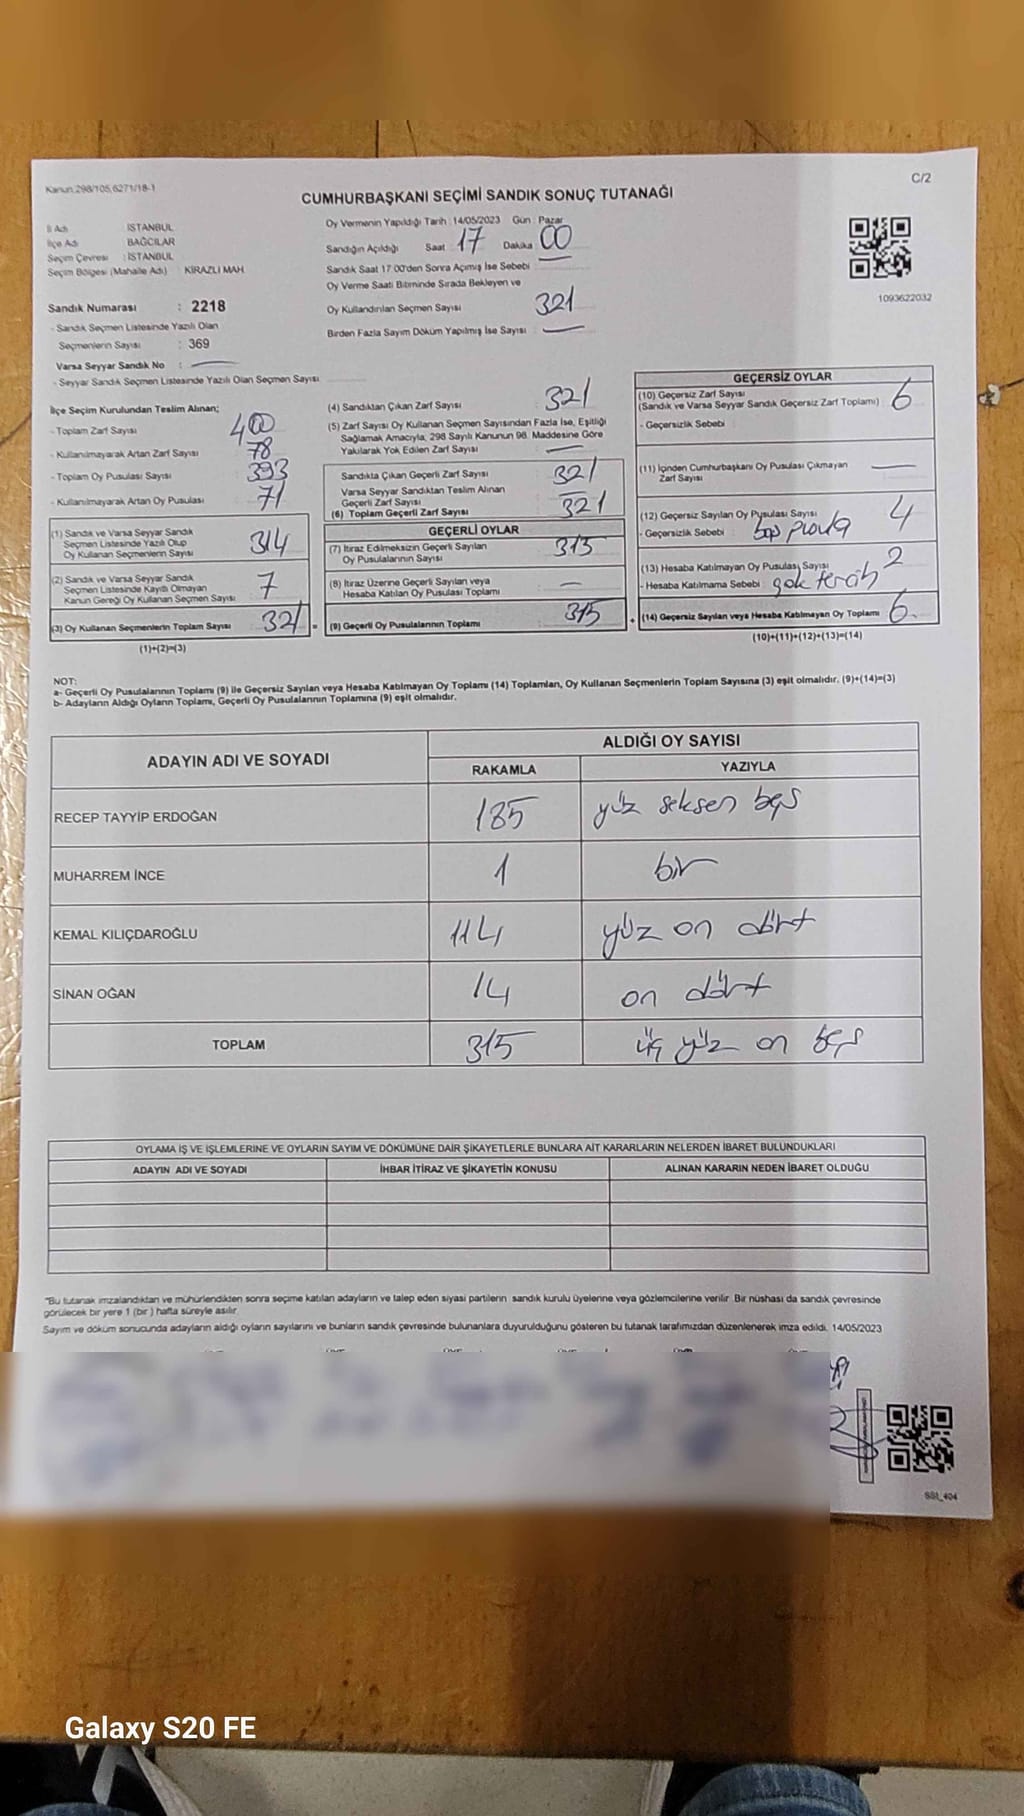 Kanun.298/105,6271/18-1
C/2
CUMHURBAŞKANI SEÇİMİ SANDIK SONUÇ TUTANAĞI
İl Adı : İSTANBUL
İlçe Adı : BAĞCILAR
Seçim Çevresi : İSTANBUL
Seçim Bölgesi (Mahalle Adı) : KİRAZLI MAH.
Sandık Numarası : 2218
- Sandık Seçmen Listesinde Yazılı Olan
Seçmenlerin Sayısı : 369
Varsa Seyyar Sandık No :
- Seyyar Sandık Seçmen Listesinde Yazılı Olan Seçmen Sayısı
Oy Vermenin Yapıldığı Tarih : 14/05/2023 Gün : Pazar
Sandığın Açıldığı Saat 17 Dakika 00
Sandık Saat 17.00'den Sonra Açımış İse Sebebi
Oy Verme Saati Bitiminde Sırada Bekleyen ve
Oy Kullandırılan Seçmen Sayısı 321
Birden Fazla Sayım Döküm Yapılmış İse Sayısı
1093622032
İlçe Seçim Kurulundan Teslim Alınan;
- Toplam Zarf Sayısı 400
- Kullanılmayarak Artan Zarf Sayısı 78
- Toplam Oy Pusulası Sayısı 393
- Kullanılmayarak Artan Oy Pusulası 71
(1) Sandık ve Varsa Seyyar Sandık
Seçmen Listesinde Yazılı Olup
Oy Kullanan Seçmenlerin Sayısı 314
(2) Sandık ve Varsa Seyyar Sandık
Seçmen Listesinde Kayıtlı Olmayan
Kanun Gereği Oy Kullanan Seçmen Sayısı 7
(3) Oy Kullanan Seçmenlerin Toplam Sayısı 321 =
(1)+(2)=(3)
(4) Sandıktan Çıkan Zarf Sayısı 321
(5) Zarf Sayısı Oy Kullanan Seçmen Sayısından Fazla İse, Eşitliği
Sağlamak Amacıyla, 298 Sayılı Kanunun 98. Maddesine Göre
Yakılarak Yok Edilen Zarf Sayısı
Sandıkta Çıkan Geçerli Zarf Sayısı 321
Varsa Seyyar Sandıktan Teslim Alınan
Geçerli Zarf Sayısı
(6) Toplam Geçerli Zarf Sayısı 321
GEÇERLİ OYLAR
(7) İtiraz Edilmeksizin Geçerli Sayılan
Oy Pusulalarının Sayısı 315
(8) İtiraz Üzerine Geçerli Sayılan veya
Hesaba Katılan Oy Pusulası Toplamı
(9) Geçerli Oy Pusulalarının Toplamı 315 +
GEÇERSİZ OYLAR
(10) Geçersiz Zarf Sayısı
(Sandık ve Varsa Seyyar Sandık Geçersiz Zarf Toplamı) 6
- Geçersizlik Sebebi :
(11) İçinden Cumhurbaşkanı Oy Pusulası Çıkmayan
Zarf Sayısı
(12) Geçersiz Sayılan Oy Pusulası Sayısı 4
- Geçersizlik Sebebi :
(13) Hesaba Katılmayan Oy Pusulası Sayısı 2
- Hesaba Katılmama Sebebi : çok tercih
(14) Geçersiz Sayılan veya Hesaba Katılmayan Oy Toplamı 6
(10)+(11)+(12)+(13)=(14)
NOT:
a- Geçerli Oy Pusulalarının Toplamı (9) ile Geçersiz Sayılan veya Hesaba Katılmayan Oy Toplamı (14) Toplamları, Oy Kullanan Seçmenlerin Toplam Sayısına (3) eşit olmalıdır. (9)+(14)=(3)
b- Adayların Aldığı Oyların Toplamı, Geçerli Oy Pusulalarının Toplamına (9) eşit olmalıdır.
ADAYIN ADI VE SOYADI ALDIĞI OY SAYISI
RAKAMLA YAZIYLA
RECEP TAYYİP ERDOĞAN 185 yüz seksen beş
MUHARREM İNCE 1 bir
KEMAL KILIÇDAROĞLU 114 yüz on dört
SİNAN OĞAN 14 on dört
TOPLAM 315 üç yüz on beş
OYLAMA İŞ VE İŞLEMLERİNE VE OYLARIN SAYIM VE DÖKÜMÜNE DAİR ŞİKAYETLERLE BUNLARA AİT KARARLARIN NELERDEN İBARET BULUNDUKLARI
ADAYIN ADI VE SOYADI İHBAR İTİRAZ VE ŞİKAYETİN KONUSU ALINAN KARARIN NEDEN İBARET OLDUĞU
"Bu tutanak imzalandıktan ve mühürlendikten sonra seçime katılan adayların ve talep eden siyasi partilerin sandık kurulu üyelerine veya gözlemcilerine verilir. Bir nüshası da sandık çevresinde
görülecek bir yere 1 (bir) hafta süreyle asılır.
Sayım ve döküm sonucunda adayların aldığı oyların sayılarını ve bunların sandık çevresinde bulunanlara duyurulduğunu gösteren bu tutanak tarafımızdan düzenlenerek imza edildi. 14/05/2023
SSt_404
Galaxy S20 FE